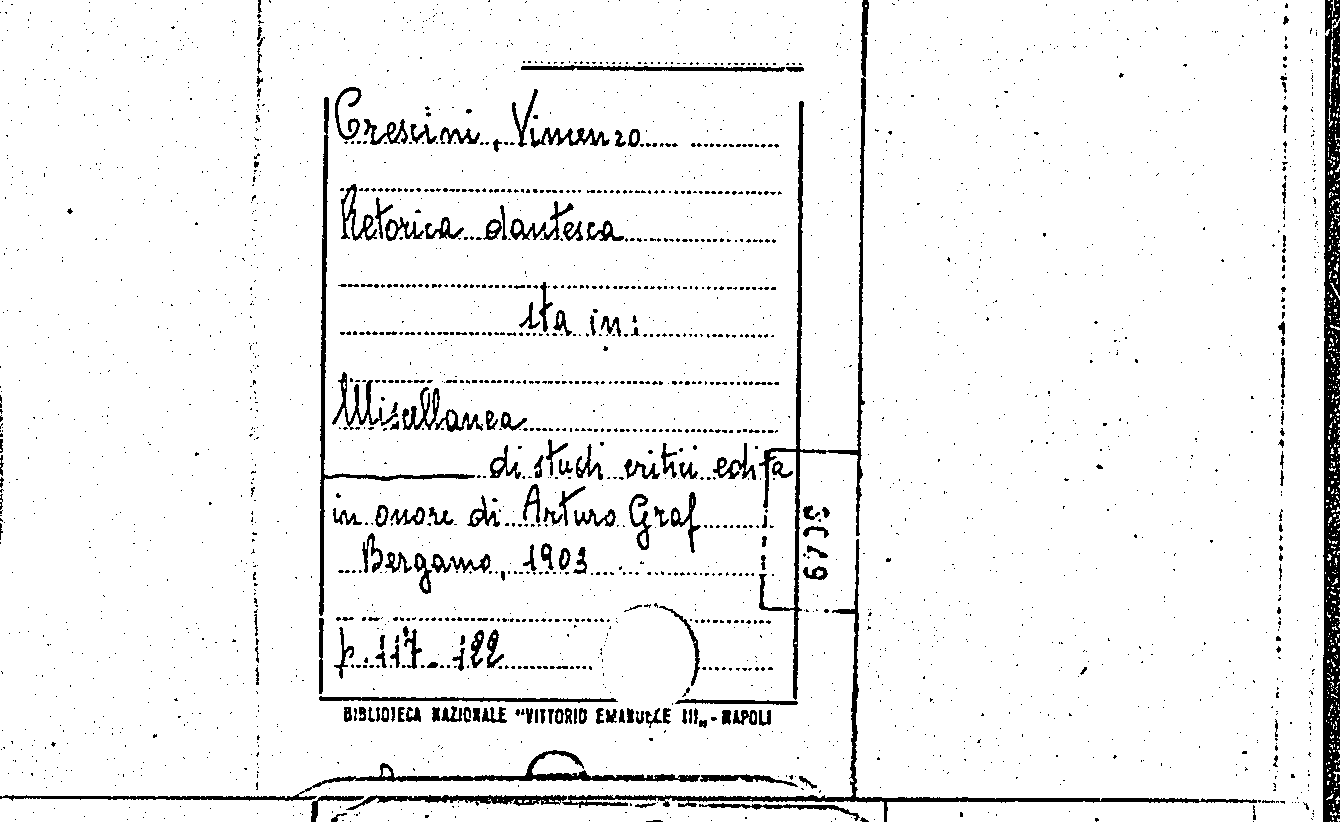 Crescini, Vincenzo
Retorica dantesca
sta in:
Miscellanea
di studi critici edita
in onore di Arturo Graf
Bergamo, 1903
p. 117-122
BIBLIOTECA NAZIONALE "VITTORIO EMANUELE III„ - NAPOLI